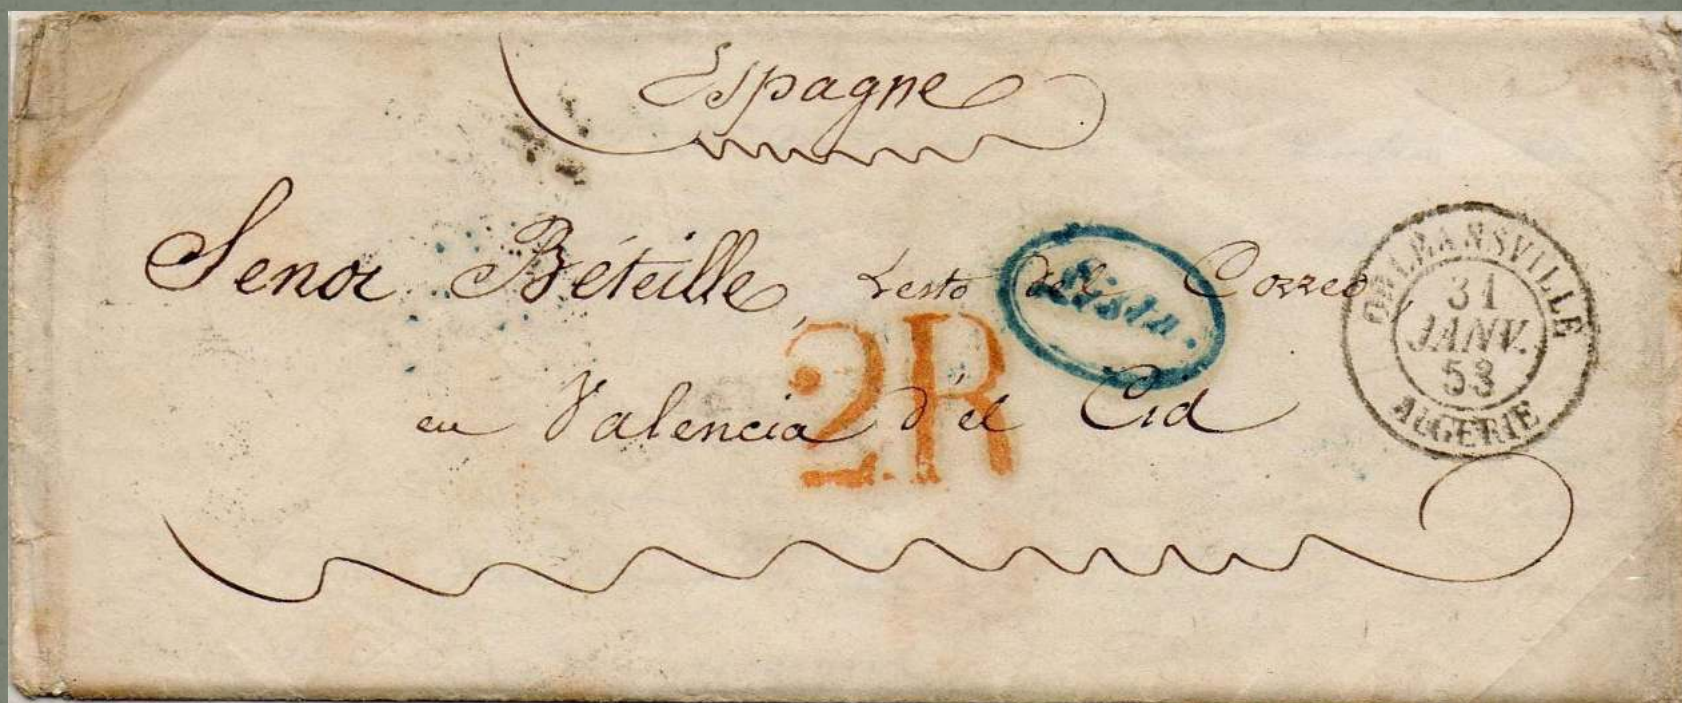 Espagne
Senor Béteille, resto del Correo
en Valencia d'el Cid
2R
ORLEANSVILLE
31
JANV.
53
ALGERIE